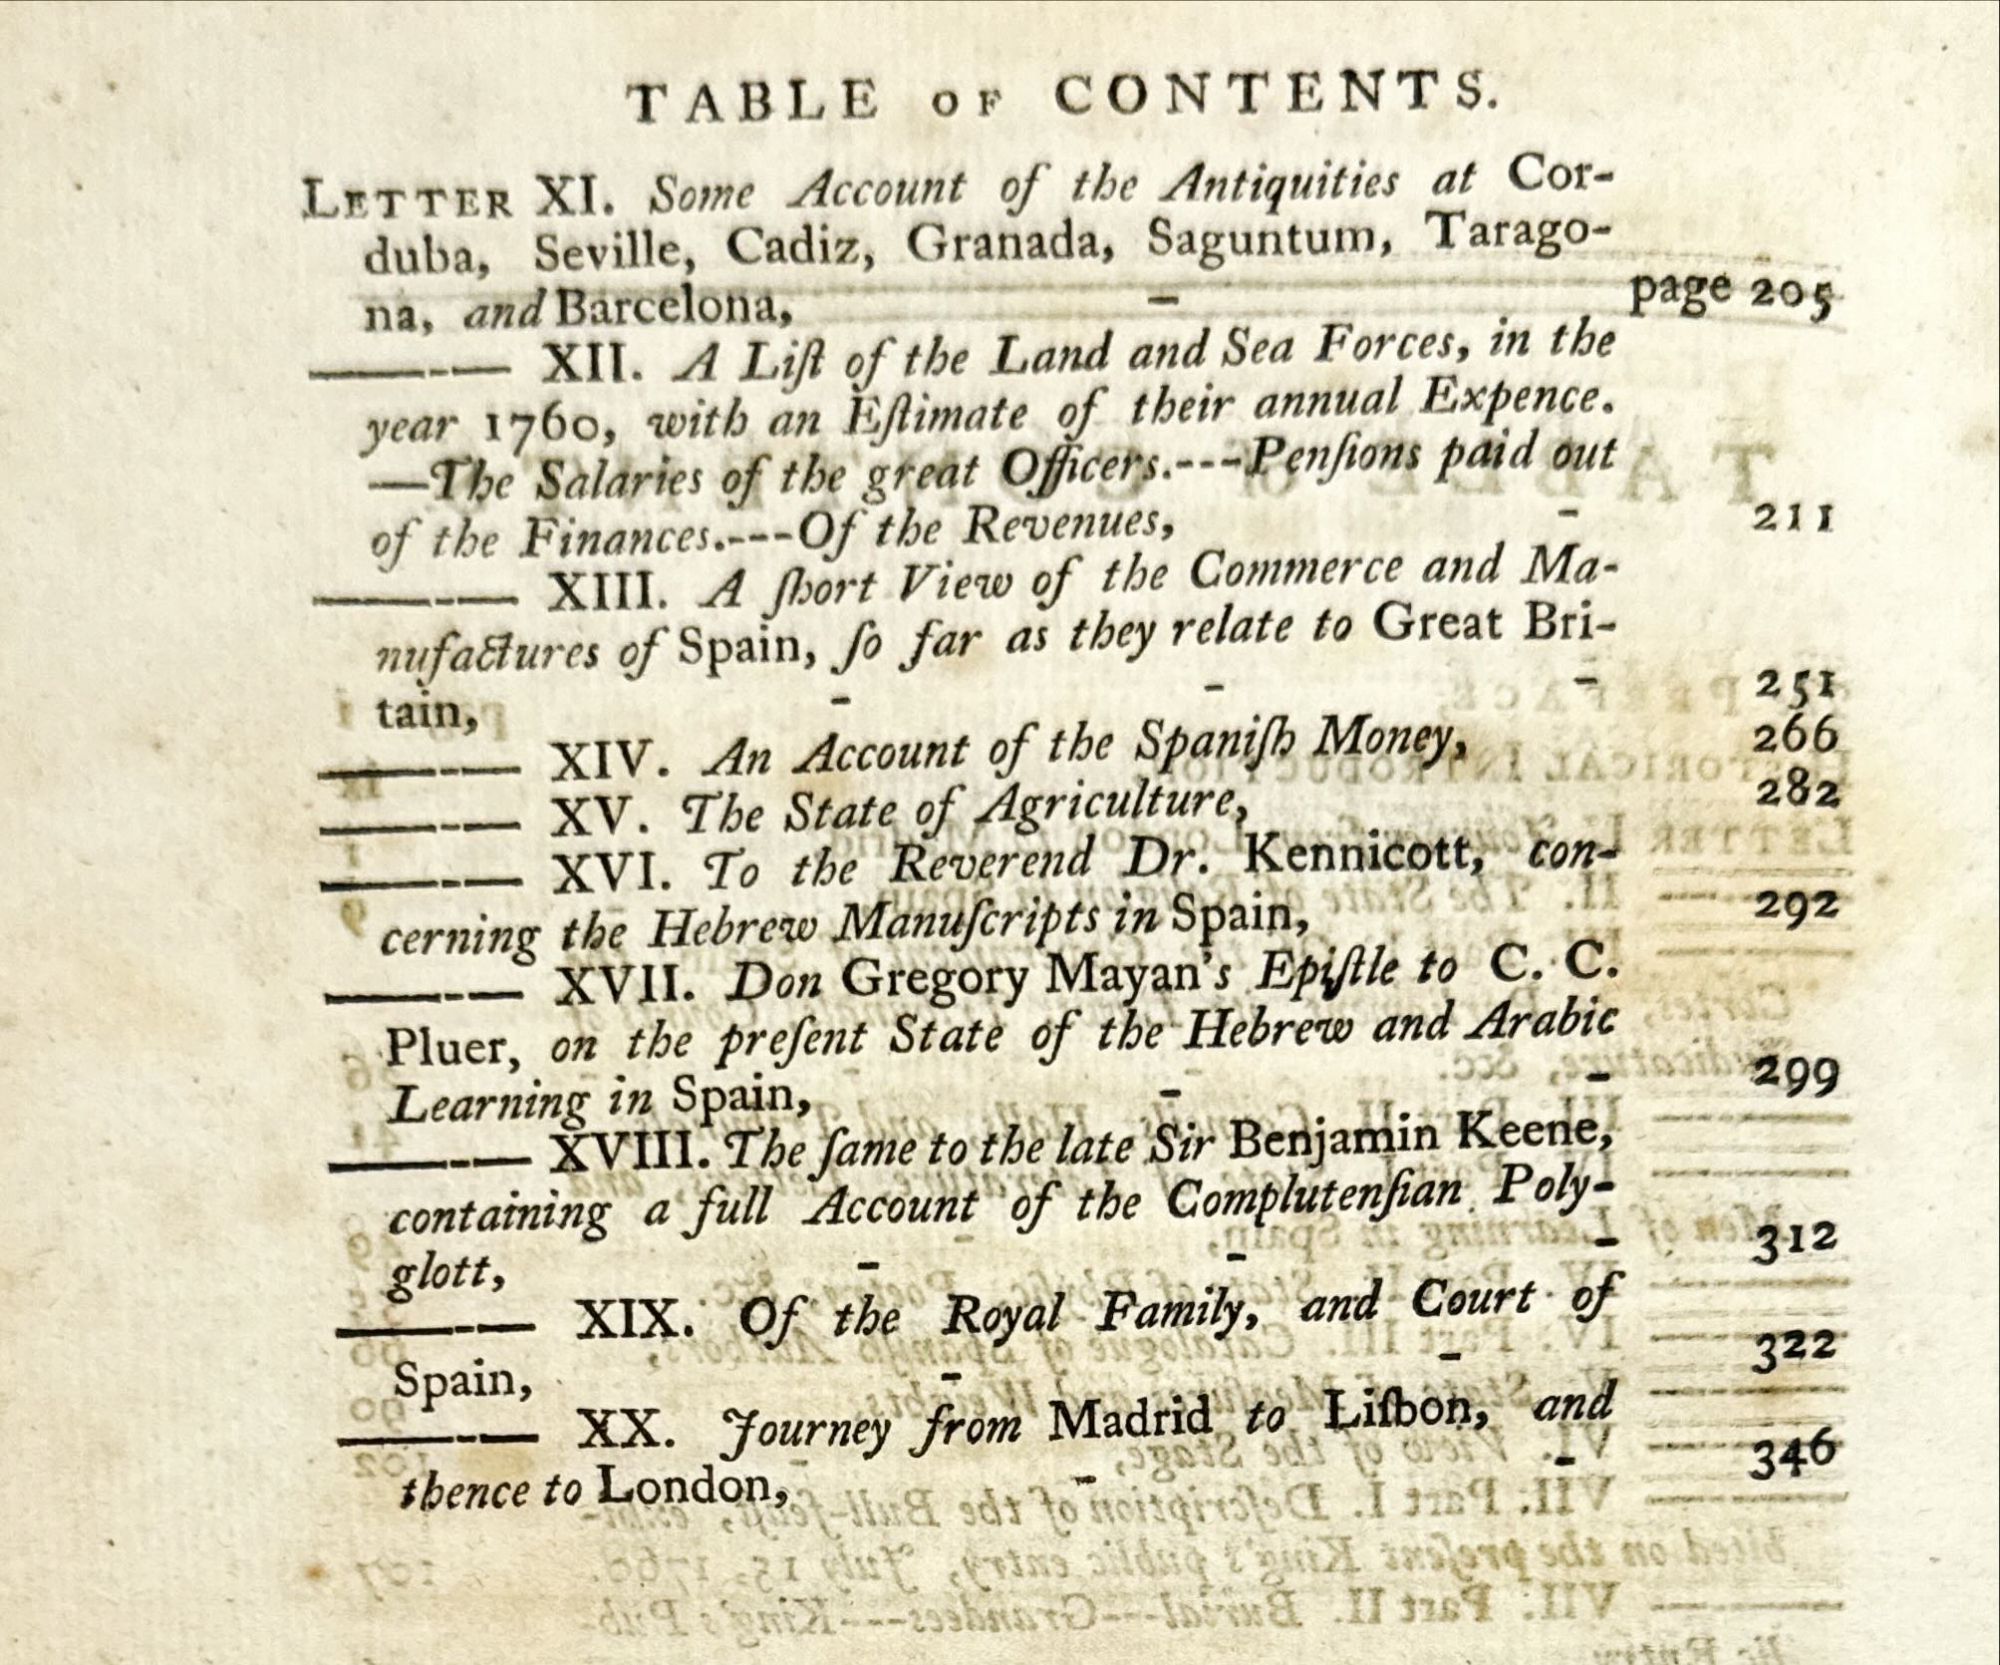 TABLE OF CONTENTS.
LETTER XI. Some Account of the Antiquities at Cor-
duba, Seville, Cadiz, Granada, Saguntum, Tarago-
na, and Barcelona, - page 205
——-— XII. A Liſt of the Land and Sea Forces, in the
year 1760, with an Eſtimate of their annual Expence.
—The Salaries of the great Officers.---Penſions paid out
of the Finances.---Of the Revenues, - 211
——-— XIII. A ſhort View of the Commerce and Ma-
nufactures of Spain, ſo far as they relate to Great Bri-
tain, - - - 251
——-— XIV. An Account of the Spaniſh Money, 266
——-— XV. The State of Agriculture, 282
——-— XVI. To the Reverend Dr. Kennicott, con-
cerning the Hebrew Manuſcripts in Spain, 292
——-— XVII. Don Gregory Mayan's Epiſtle to C. C.
Pluer, on the preſent State of the Hebrew and Arabic
Learning in Spain, - - 299
——-— XVIII. The ſame to the late Sir Benjamin Keene,
containing a full Account of the Complutenſian Poly-
glott, - - - 312
——-— XIX. Of the Royal Family, and Court of
Spain, - - 322
——-— XX. Journey from Madrid to Liſbon, and
thence to London, - - 346